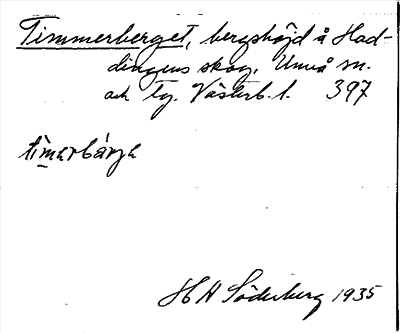 Timmerberget, bergshöjd å Had-
dingens skog, Umeå sn.
och tg. Västerb. l. 397
timerbärje
H A Söderberg 1935